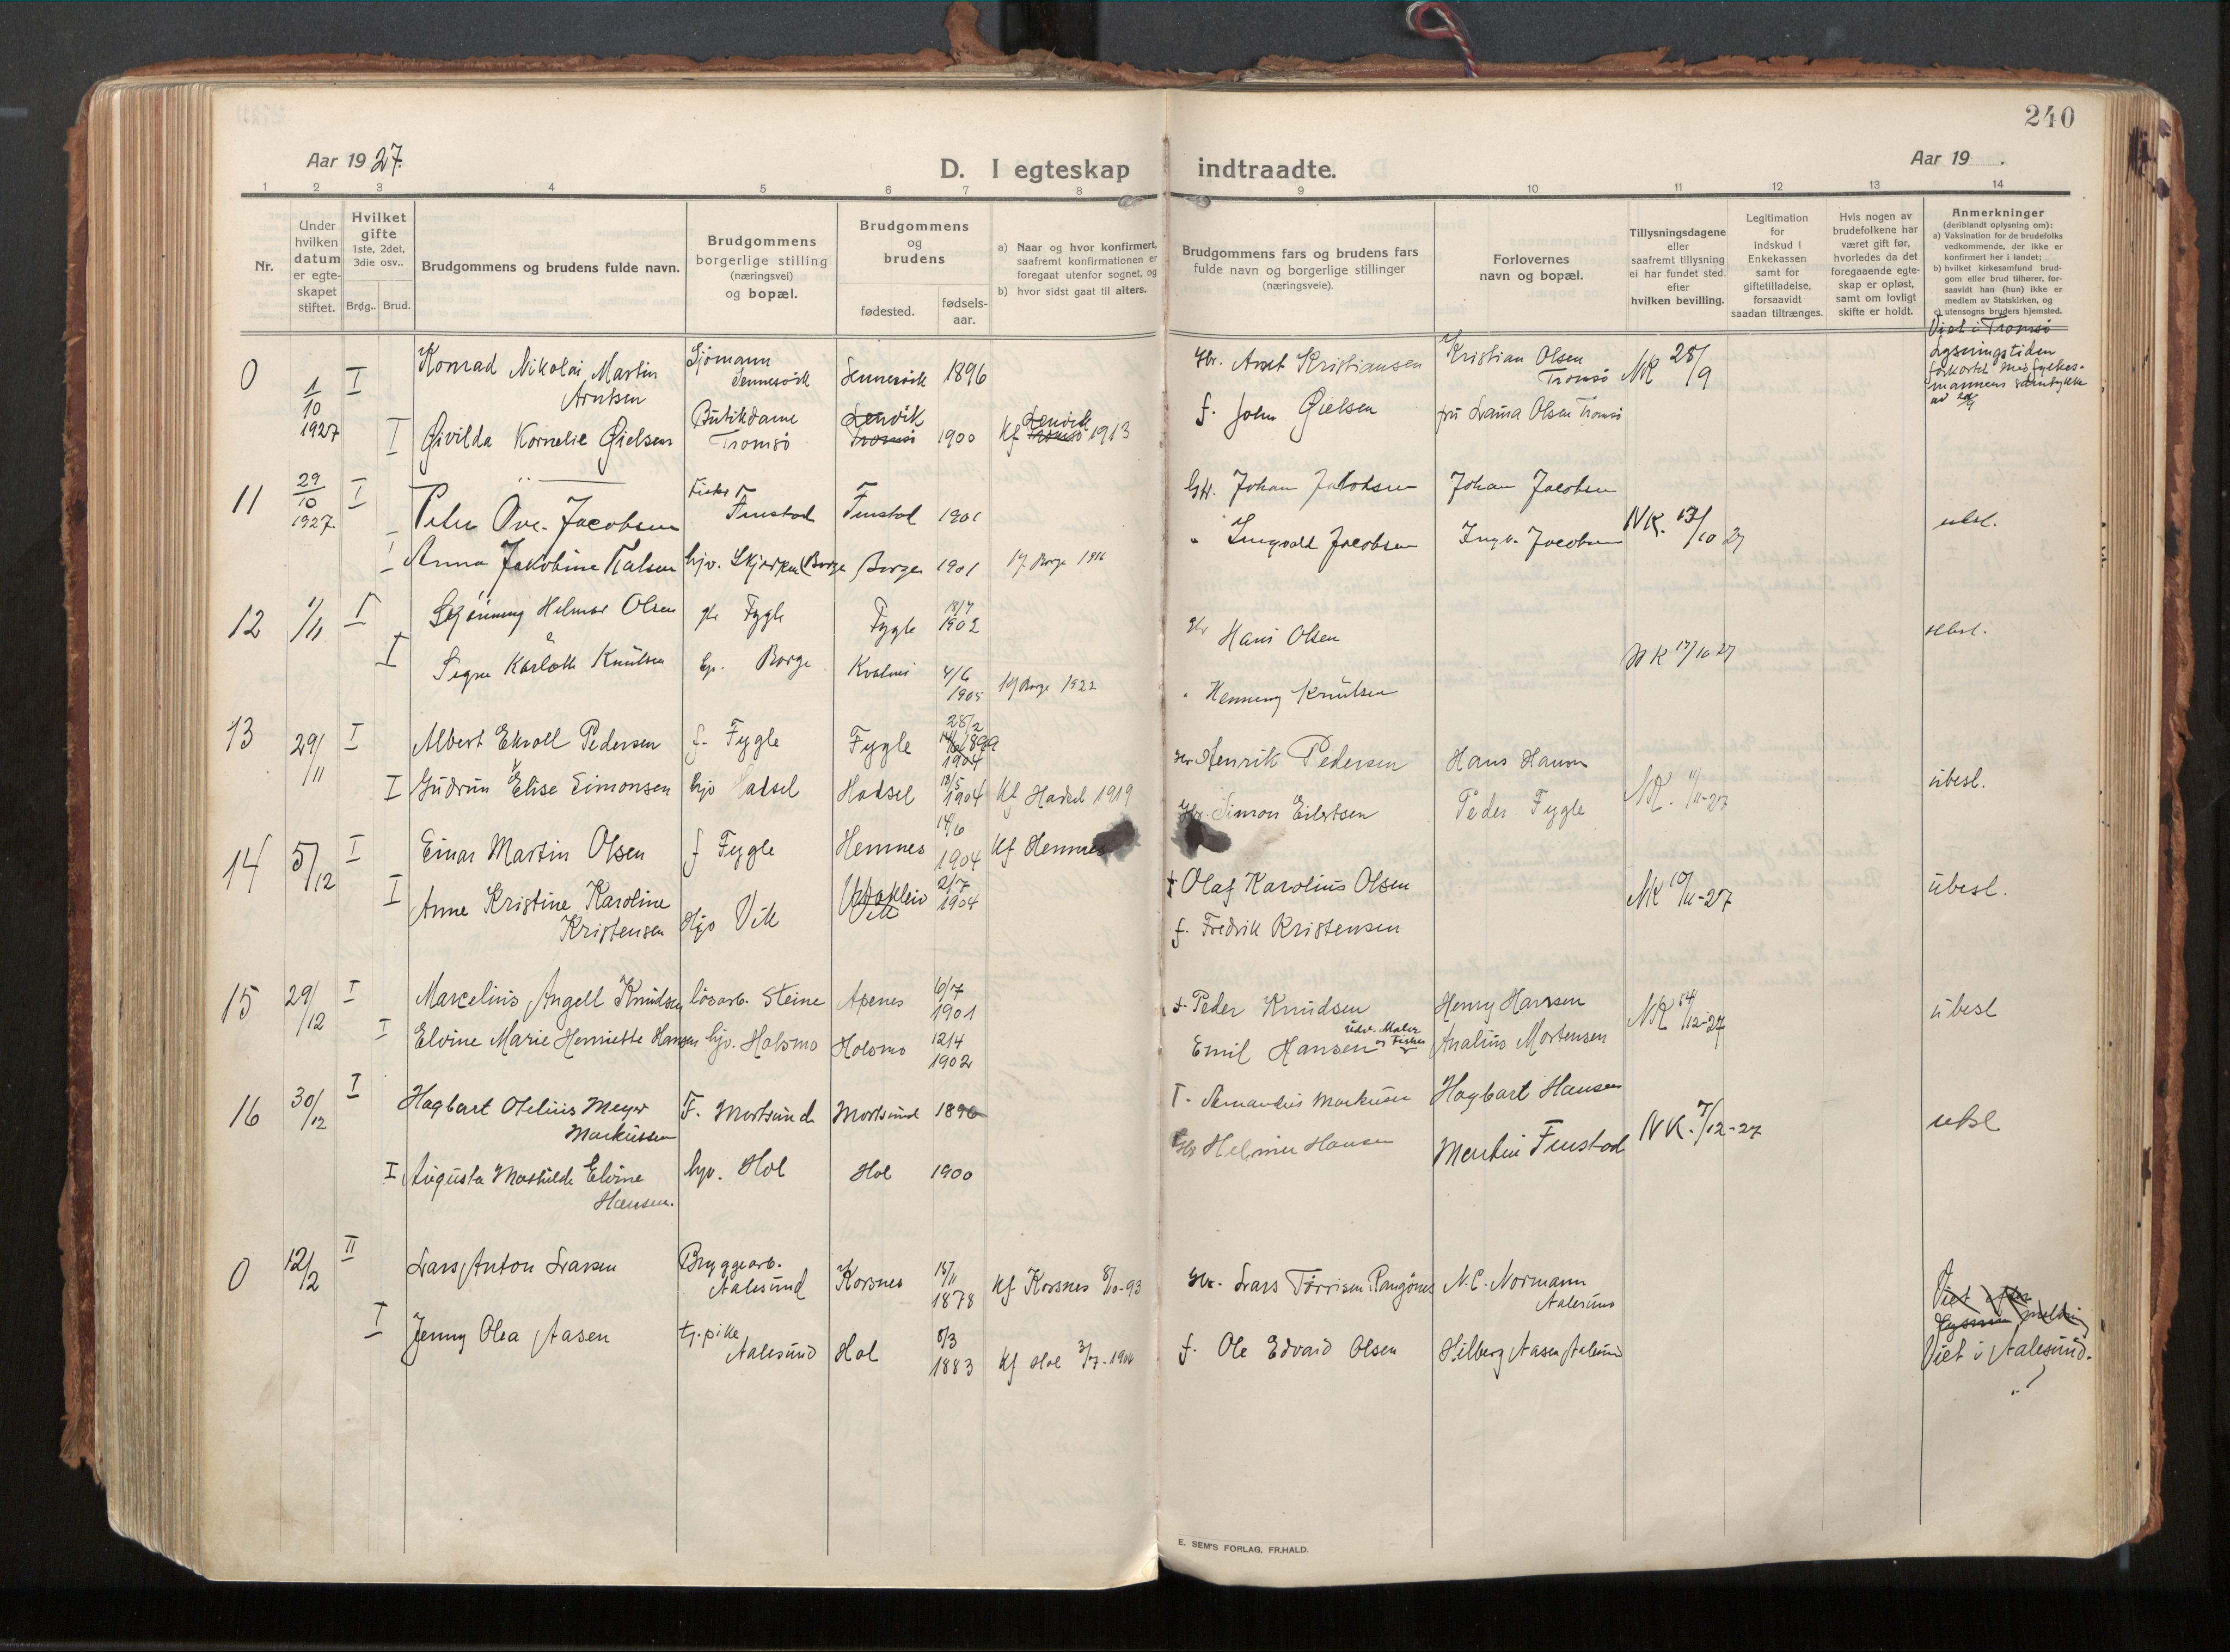 240
Aar 1927.
D. I egteskap indtraadte.
Aar 19 .
1 2 3 4 5 6 7 8 9 10 11 12 13 14
Nr.
Under
hvilken
datum
er egte-
skapet
stiftet.
Hvilket
gifte
1ste, 2det,
3die osv..
Brdg. Brud.
Brudgommens og brudens fulde navn.
Brudgommens
borgerlige stilling
(næringsvei)
og bopæl.
Brudgommens
og
brudens
fødested.
fødsels-
aar.
a) Naar og hvor konfirmert,
saafremt konfirmationen er
foregaat utenfor sognet, og
b) hvor sidst gaat til alters.
Brudgommens fars og brudens fars
fulde navn og borgerlige stillinger
(næringsveie).
Forlovernes
navn og bopæl.
Tillysningsdagene
eller
saafremt tillysning
ei har fundet sted,
efter
hvilken bevilling.
Legitimation
for
indskud i
Enkekassen
samt for
giftetilladelse,
forsaavidt
saadan tiltrænges.
Hvis nogen av
brudefolkene har
været gift før,
hvorledes da det
foregaaende egte-
skap er opløst,
samt om lovligt
skifte er holdt.
Anmerkninger
(deriblandt oplysning om):
a) Vaksination for de brudefolks
vedkommende, der ikke er
konfirmert her i landet;
b) hvilket kirkesamfund brud-
gom eller brud tilhører, for-
saavidt han (hun) ikke er
medlem av Statskirken, og
c) utensogns bruders hjemsted.
0 1/10 1927 I Konrad Nikolai Martin Arntsen Sjömann Sennesvik Sennesvik 1896 Gbr. Arnt Kristiansen Kristian Olsen Tromsö NK 28/9
Viet i Tromsö
Lysningstiden
forkortet med fylkes-
mannens samtykke
av
I Givilda Kornelie Gielsen Butikdame Tromsö Lenvik Tromsö 1900 Kf Lenvik Tromsö 1913 f. John Gielsen fru Laura Olsen Tromsö
11 29/10 1927. I Peter Ove Jacobsen Fisker Finstad Finstad 1901 Gbr. Johan Jakobsen Johan Jacobsen NK. 13/10 27 ubsl.
I Anna Jakobine Kalsen hjv. Skjerpen (Borge Borge 1901 Kf. Borge 1916 " Ingvald Jacobsen Ingv. Jacobsen
12 1/11 I Henning Helmar Olsen Fygle Fygle 18/7 1902 Gbr Hans Olsen NK 17/10 27 ubsl.
I Signe Karlotte Knutsen hj. Borge Kvalnes 4/6 1905 Kf Borge 1922 " Henning Knutsen
13 29/11 I Albert Ekroll Pedersen f. Fygle Fygle 28/2 1899 1904 Gbr Henrik Pedersen Hans Hansen NK. 11/11-27 ubesl.
I Gudrun Elise Simonsen hjv Hadsel Hadsel 18/5 1904 Kf Hadsel 1919 Gbr. Simon Eilertsen Peder Fygle
14 5/12 I Einar Martin Olsen f Fygle Hemnes 14/6 1904 Kf Hemnes f Olaf Karolius Olsen NK 10/11-27 ubesl.
I Anne Kristine Karoline Kristensen Hjv Vik Vik 2/7 1904 f. Fredrik Kristensen
15 29/12 I Marselius Angell Knudsen lösarb. Steine Apenes 6/7 1901 f. Peder Knudsen Henry Hansen NK 14/12-27 ubesl
I Elvine Marie Henriette Hansen hjv. Holsmo Holsmo 12/4 1902 Emil Hansen Maler og Fisker Analius Mortensen
16 30/12 I Hagbart Otelius Meyer Markussen F. Mortsund Mortsund 1896 F. Amandus Markusen Hagbart Hansen NK. 7/12-27 ubsl
I Augusta Mathilde Elvine Hansen. hjv. Hol Hol 1900 Gbr Helmer Hansen Martin Finstad
0 12/2 II Lars Anton Larsen Bryggearb. Aalesund Korsnes 18/11 1878 Kf Korsnes 8/10-93 Gbr. Lars Tørrisen Rangönes N. C. Normann Aalesund
I Jenny Olea Aasen tj.pike Aalesund Hol 8/3 1883 Kf Hol f. Ole Edvard Olsen Hilberg Aasen Aalesund
Viet efter
melding
Viet i Aalesund.
E. SEM'S FORLAG, FR.HALD.